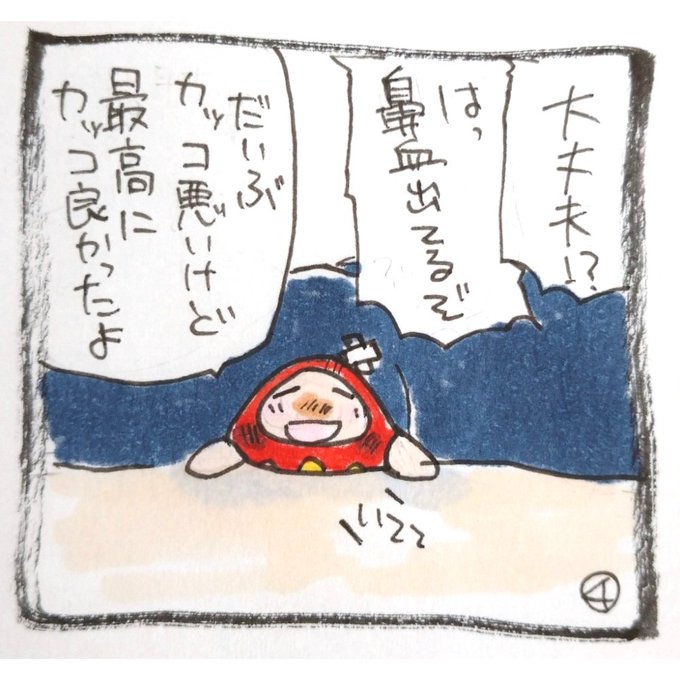 大丈夫!?
はっ
鼻血出てるぞ
だいぶ
カッコ悪いけど
最高に
カッコ良かったよ
いてて
④